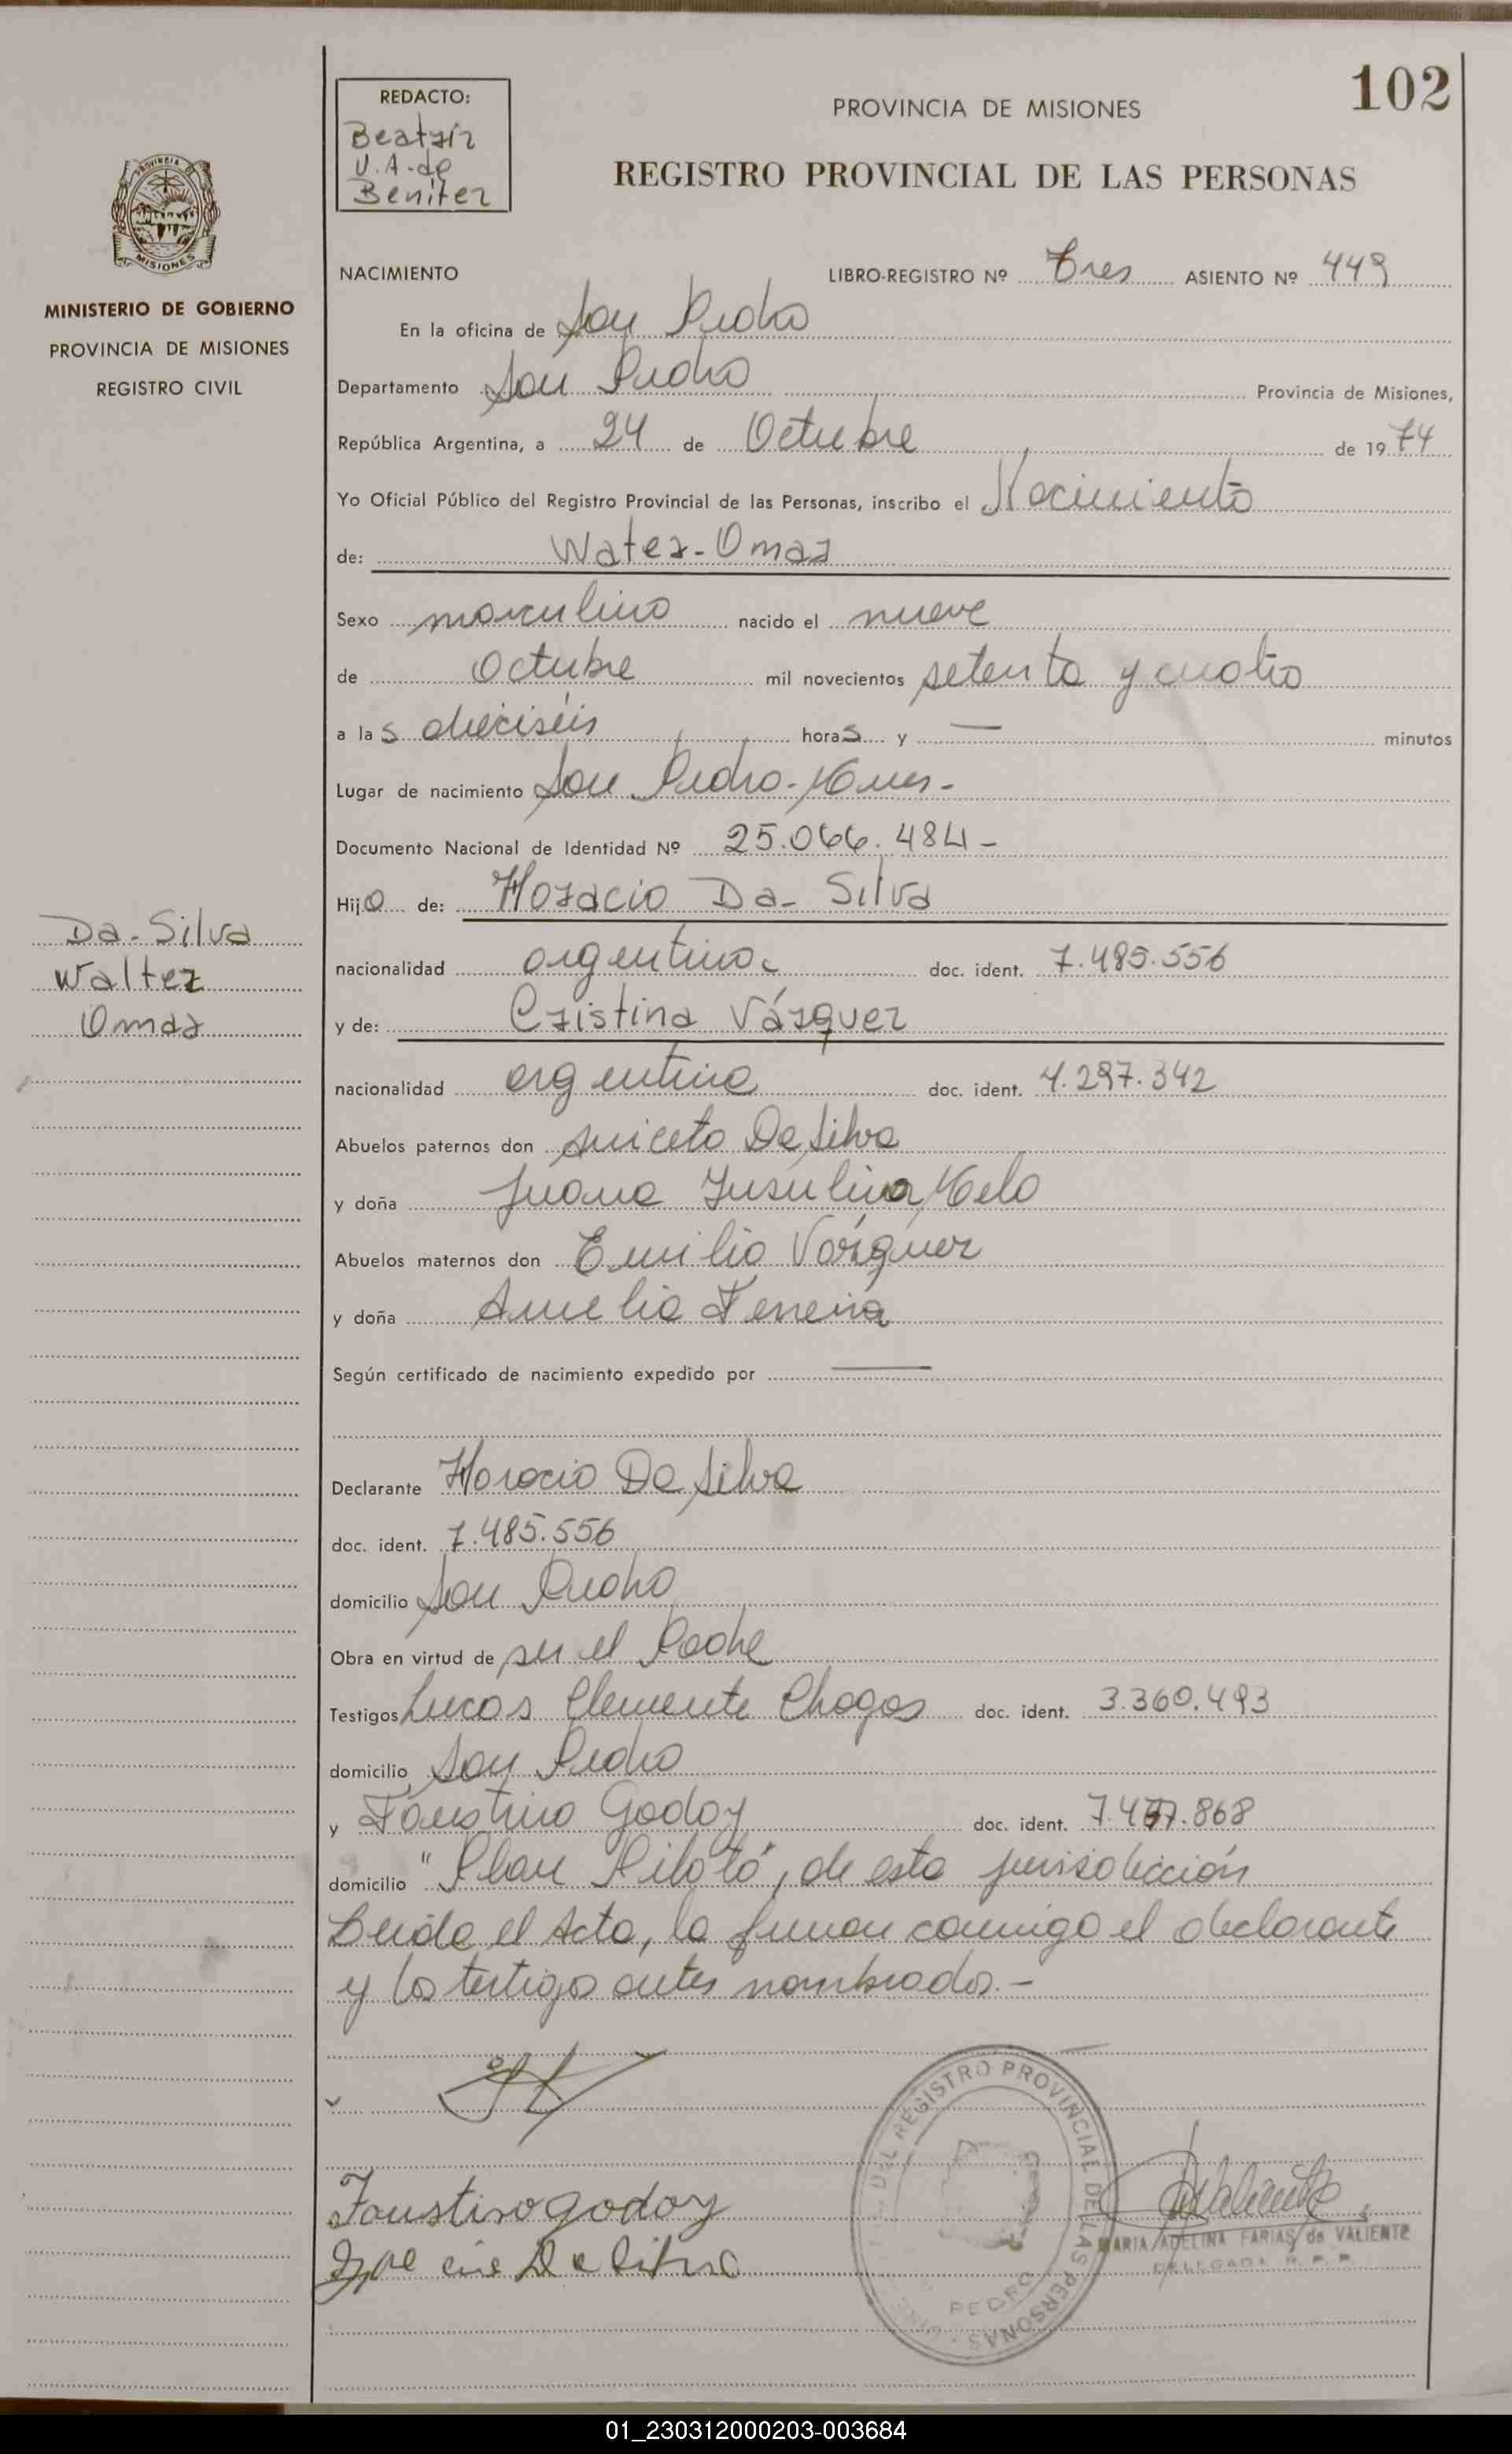 102
REDACTO:
Beatriz
V. A. de
Benítez
PROVINCIA DE MISIONES
REGISTRO PROVINCIAL DE LAS PERSONAS
PROVINCIA
MISIONES
MINISTERIO DE GOBIERNO
PROVINCIA DE MISIONES
REGISTRO CIVIL
NACIMIENTO LIBRO-REGISTRO Nº Tres ASIENTO Nº 449
En la oficina de San Pedro
Departamento San Pedro Provincia de Misiones,
República Argentina, a 24 de Octubre de 1974
Yo Oficial Público del Registro Provincial de las Personas, inscribo el Nacimiento
de: Water-Omar
Sexo masculino nacido el nueve
de Octubre mil novecientos setenta y cuatro
a las dieciséis horas y — minutos
Lugar de nacimiento San Pedro-Mnes-
Documento Nacional de Identidad Nº 25.066.484-
Hijo de: Horacio Da-Silva
Da-Silva
Walter
Omar
nacionalidad argentino doc. ident. 7.485.556
y de: Cristina Vázquez
nacionalidad argentina doc. ident. 4.297.342
Abuelos paternos don Aniceto Da Silva
y doña Juana Melo
Abuelos maternos don Emilio Vázquez
y doña Amelia Ferreira
Según certificado de nacimiento expedido por —
Declarante Horacio Da Silva
doc. ident. 7.485.556
domicilio San Pedro
Obra en virtud de ser el Padre
Testigos Lucas Clemente Chagas doc. ident. 3.360.493
domicilio San Pedro
y Faustino Godoy doc. ident.
domicilio "Plan Piloto", de esta jurisdicción
Leída el Acta, la firman conmigo el declarante
y los testigos antes nombrados.-
Faustino godoy
Da Silva
DEL REGISTRO PROVINCIAL DE LAS PERSONAS
PEDRO
MARIA ADELINA FARIAS de VALIENTE
DELEGADA R. P. P.
01_230312000203-003684